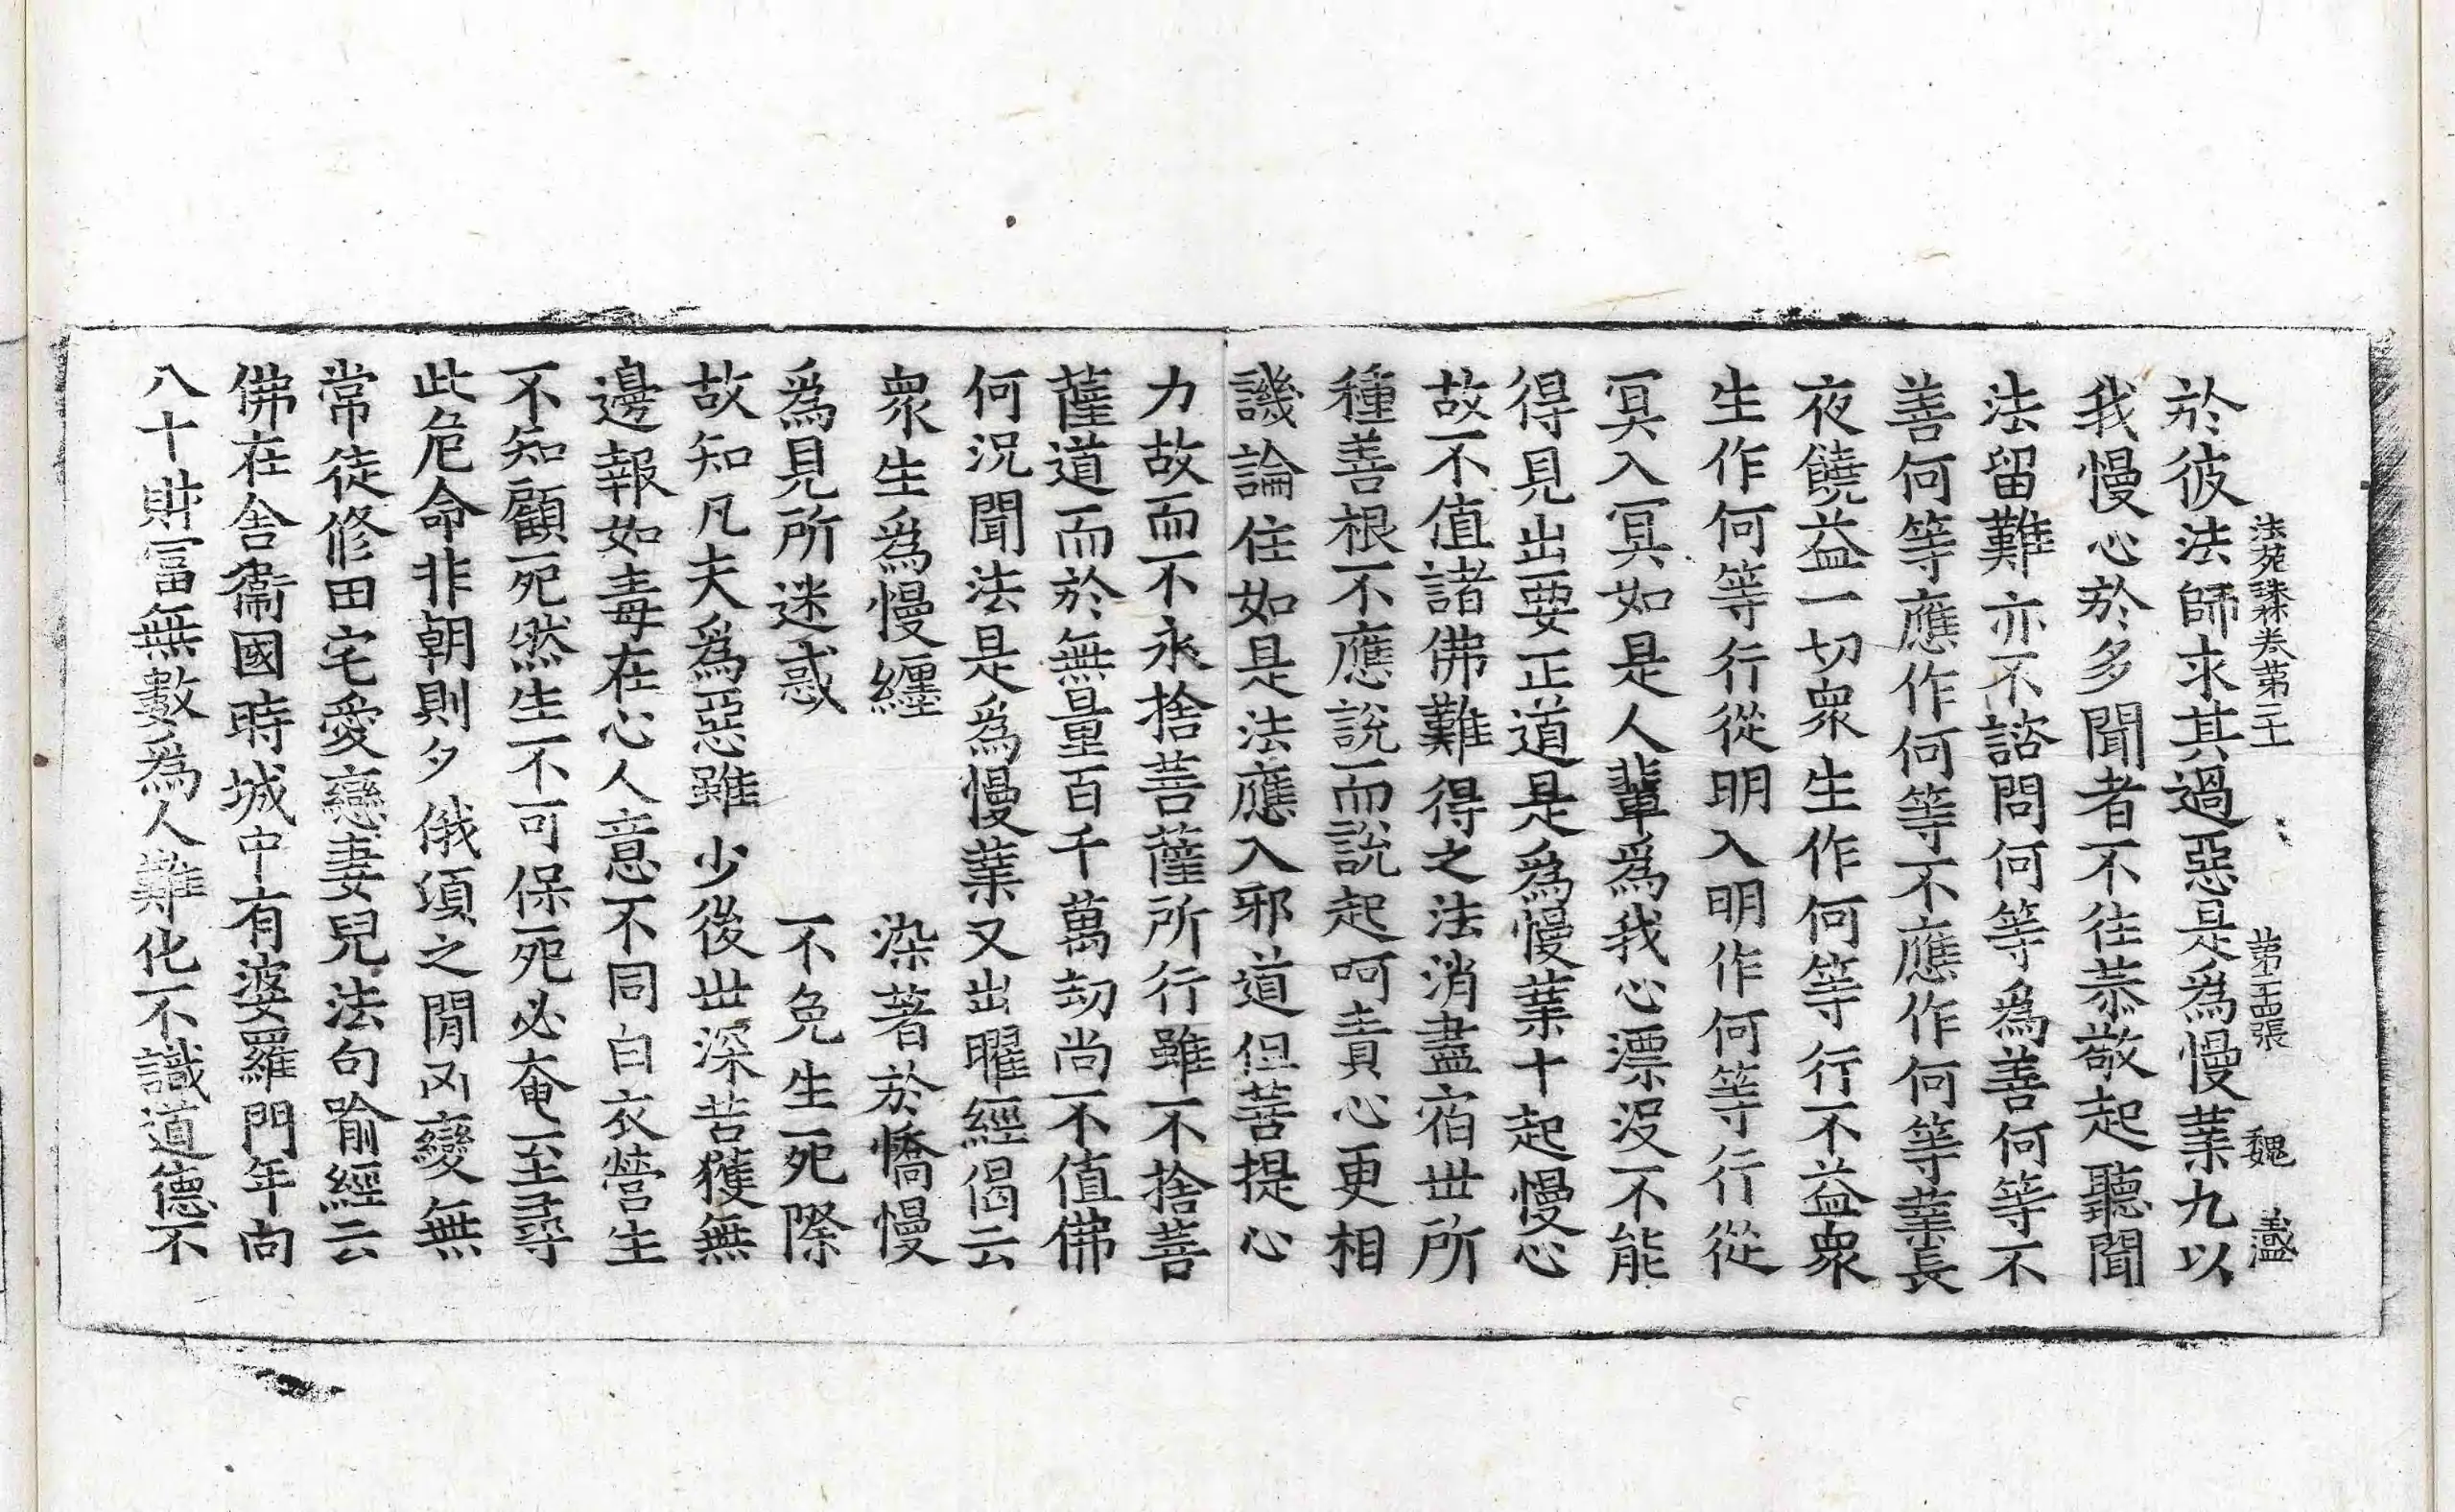 法苑珠林卷第 第二十四張 魏
於彼法師求其過惡是爲慢業九以
我慢心於多聞者不往恭敬起聽聞
法留難亦不諮問何等爲善何等不
善何等應作何等不應作何等業長
夜饒益一切衆生作何等行不益衆
生作何等行從明入明作何等行從
冥入冥如是人輩爲我心漂沒不能
得見出要正道是爲慢業十起慢心
故不值諸佛難得之法消盡宿世所
種善根不應說而說起呵責心更相
譏論住如是法應入邪道但菩提心
力故而不永捨菩薩所行雖不捨菩
薩道而於無量百千萬劫尚不值佛
何況聞法是爲慢業又出曜經偈云
衆生爲慢纏 染著於憍慢
爲見所迷惑 不免生死際
故知凡夫爲惡雖少後世深苦獲無
邊報如毒在心人意不同白衣營生
不知顧死然生不可保死必奄至尋
此危命非朝則夕俄須之閒凶變無
常徒修田宅愛戀妻兒法句喻經云
佛在舍衞國時城中有婆羅門年向
八十財富無數爲人難化不識道德不